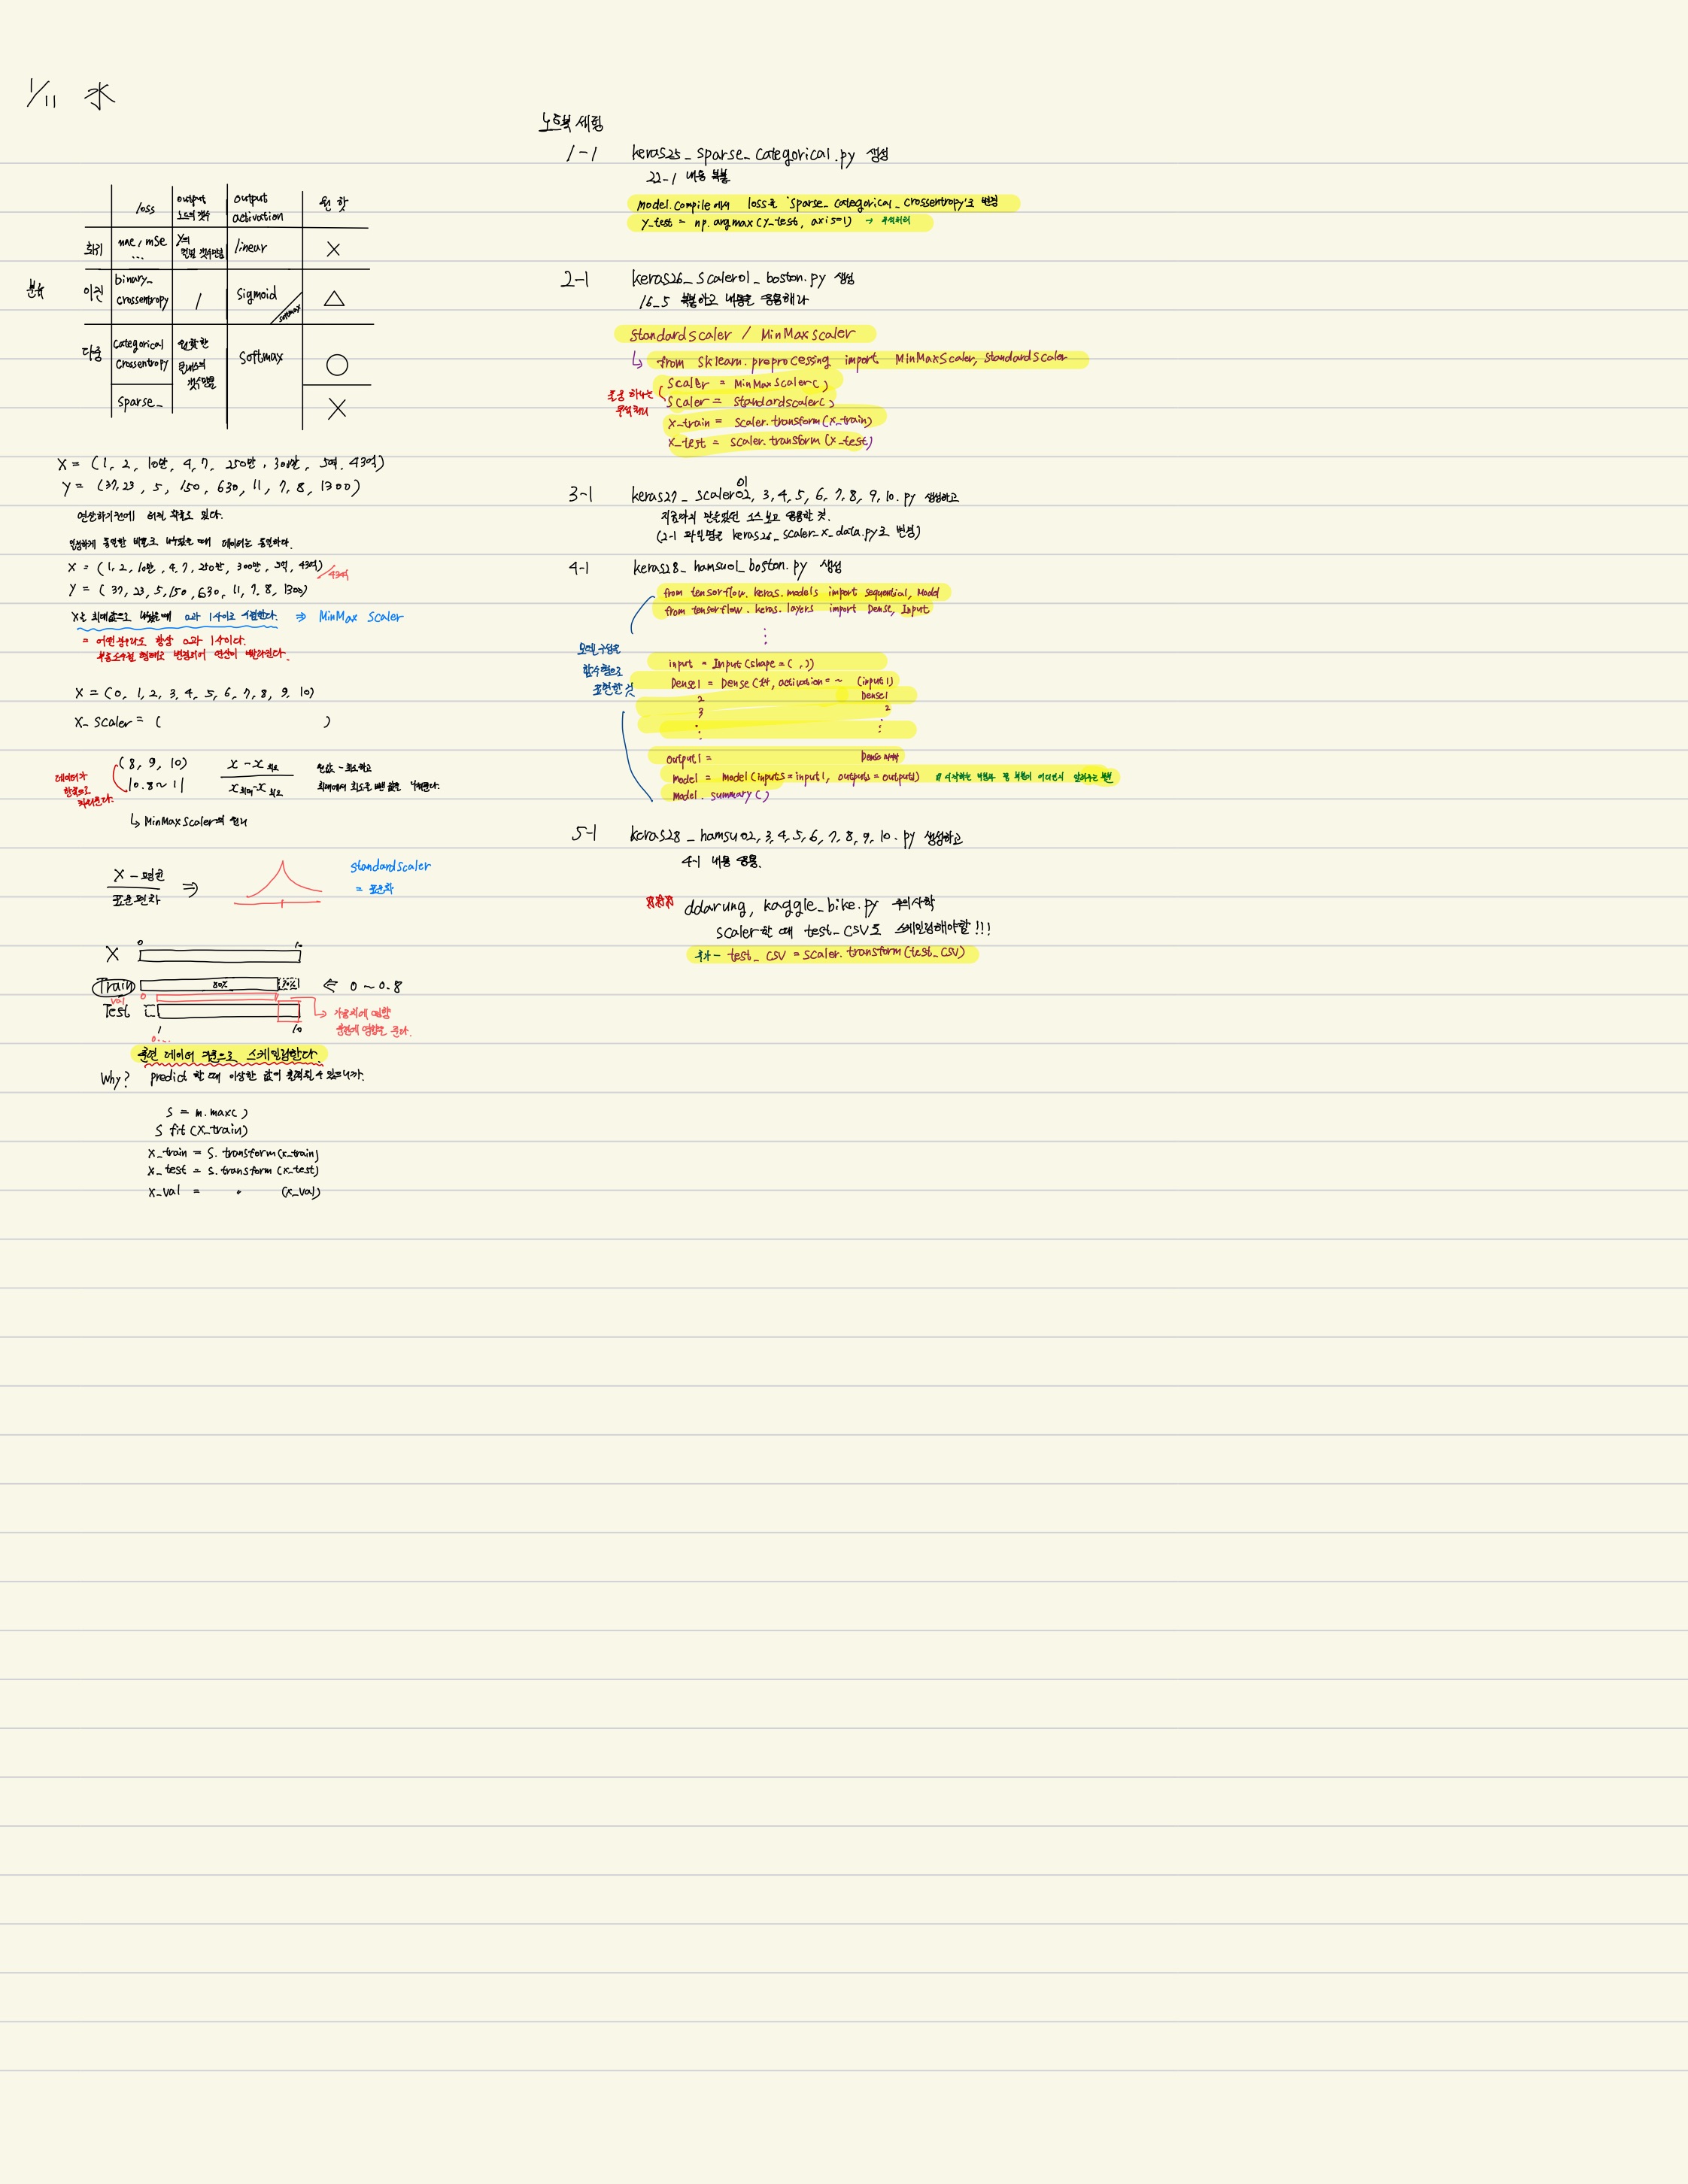 1/11 水
loss
output 노드의 갯수
output activation
원 핫
회귀
mae, mse ...
Y의 컬럼 갯수만큼
linear
X
분류
이진
binary_ crossentropy
1
sigmoid
softmax
△
다중
categorical crossentropy
원핫한 클래스의 갯수만큼
softmax
○
sparse_
X
X = (1, 2, 10만, 4, 7, 250만, 300만, 5억, 43억)
Y = (37, 23, 5, 150, 630, 11, 7, 8, 1300)
연산하기전에 터질 확률도 있다.
일정하게 동일한 비율로 나누었을 때 데이터는 동일하다.
X = (1, 2, 10만, 4, 7, 250만, 300만, 5억, 43억) /43억
Y = (37, 23, 5, 150, 630, 11, 7, 8, 1300)
X를 최대값으로 나눴을때 0과 1사이로 수렴한다. ⇒ MinMax Scaler
= 어떤경우라도 항상 0과 1사이다.
부동소수점 형태로 변경되어 연산이 빨라진다.
X = (0, 1, 2, 3, 4, 5, 6, 7, 8, 9, 10)
X_ scaler = ( )
(8, 9, 10)
데이터가 한쪽으로
|0.8 ~ 1|
x - x 최소
x 최대 - x 최소
원값 - 최소하고
최대에서 최소를 뺀 값을 나눠준다.
↳ MinMaxScaler의 원리
X - 평균
표준편차
⇒
standardscaler
= 표준화
X
0
10
Train
80%
20%
⇐ 0 ~ 0.8
val
0
Test
1
10
↳ 가중치에 영향
훈련 데이터 기준으로 스케일링한다.
Why? predict 할 때 이상한 값이 출력될 수 있으니까.
S = m.max( )
S fit (X_train)
X_train = S. transform(x_train)
X_test = S. transform (x_test)
X_val = 〃 (x_val)
노트북 세팅
1-1 keras25_ sparse_ categorical.py 생성
22-1 내용 복붙
model.compile 에서 loss를 'sparse_ categorical_ crossentropy'로 변경
Y_test = np.argmax (Y_test, axis=1) → 주석처리
2-1 keras26_ scaler01_ boston.py 생성
16_5 복붙하고 내용을 응용해라
standardscaler / MinMaxscaler
↳ from sklearn.preprocessing import MinMaxScaler, StandardScaler
둘중 하나는 주석처리
Scaler = MinMaxscaler( )
Scaler = Standardscaler( )
X_train = scaler.transform(x_train)
X_test = scaler.transform (x_test)
3-1 keras27_ scaler01 02, 3, 4, 5, 6, 7, 8, 9, 10. py 생성하고
지금까지 만들었던 소스 보고 응용할 것.
(2-1 파일명은 keras26_ scaler_x_data.py로 변경)
4-1 keras28_ hamsu01_boston.py 생성
from tensorflow. keras.models import sequential, Model
from tensorflow. keras. layers import Dense, Input
⋮
모델구성을 함수형으로 표현한 것
input = Input (shape = ( , ))
Dense1 = Dense ( , activation = ~ (input1)
2 Dense1
3 2
⋮ ⋮
output1 = Dense
Model = Model (inputs = input1, outputs = output1)
Model. summary ( )
5-1 keras28_ hamsu02, 3, 4, 5, 6, 7, 8, 9, 10. py 생성하고
4-1 내용 응용.
※※※ ddarung, kaggle_bike.py 주의사항
scaler할 때 test_CSV도 스케일링해야함!!!
추가- test_ CSV = scaler. transform(test_ CSV)